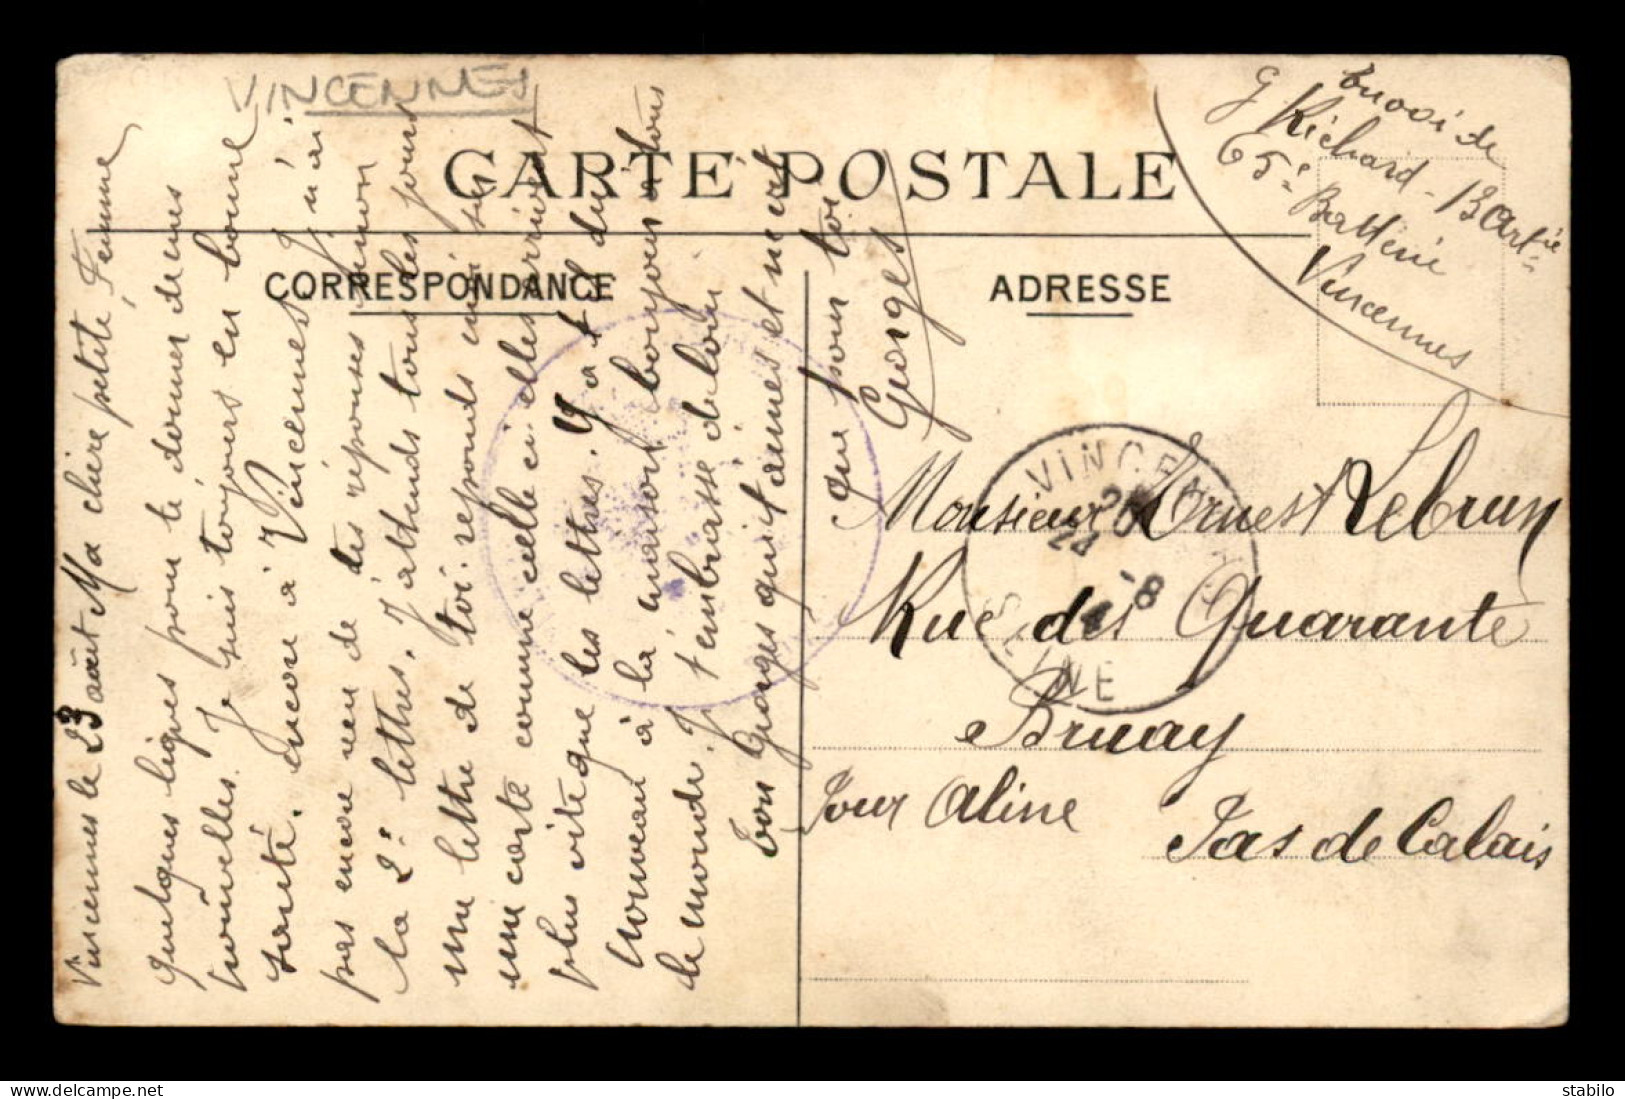 VINCENNES
CARTE POSTALE
CORRESPONDANCE
ADRESSE
Envoi de
G Richard - 13 Artie
65e Batterie
Vincennes
Vincennes le 23 août Ma chère petite Femme
Quelques lignes pour te donner de mes
nouvelles. Je suis toujours en bonne
santé. encore à Vincennes. Je n'ai
pas encore reçu de tes réponses sinon
la 2e lettres. J'attends tous les jours
une lettre de toi. reponds moi sur
une carte comme celle ci. elles arrivent
plus vite que les lettres. Y a t il du
nouveau à la maison. bonjour à tous
le monde. Je t'embrasse de loin
Ton Georges qui t'aimes et n'est
que pour toi
Georges
VINCENNES
24 -8
SEINE
Monsieur Ernest Lebrun
Rue des Quarante
Bruay
Pour Aline
Pas de Calais
delcampe.net
stabilo